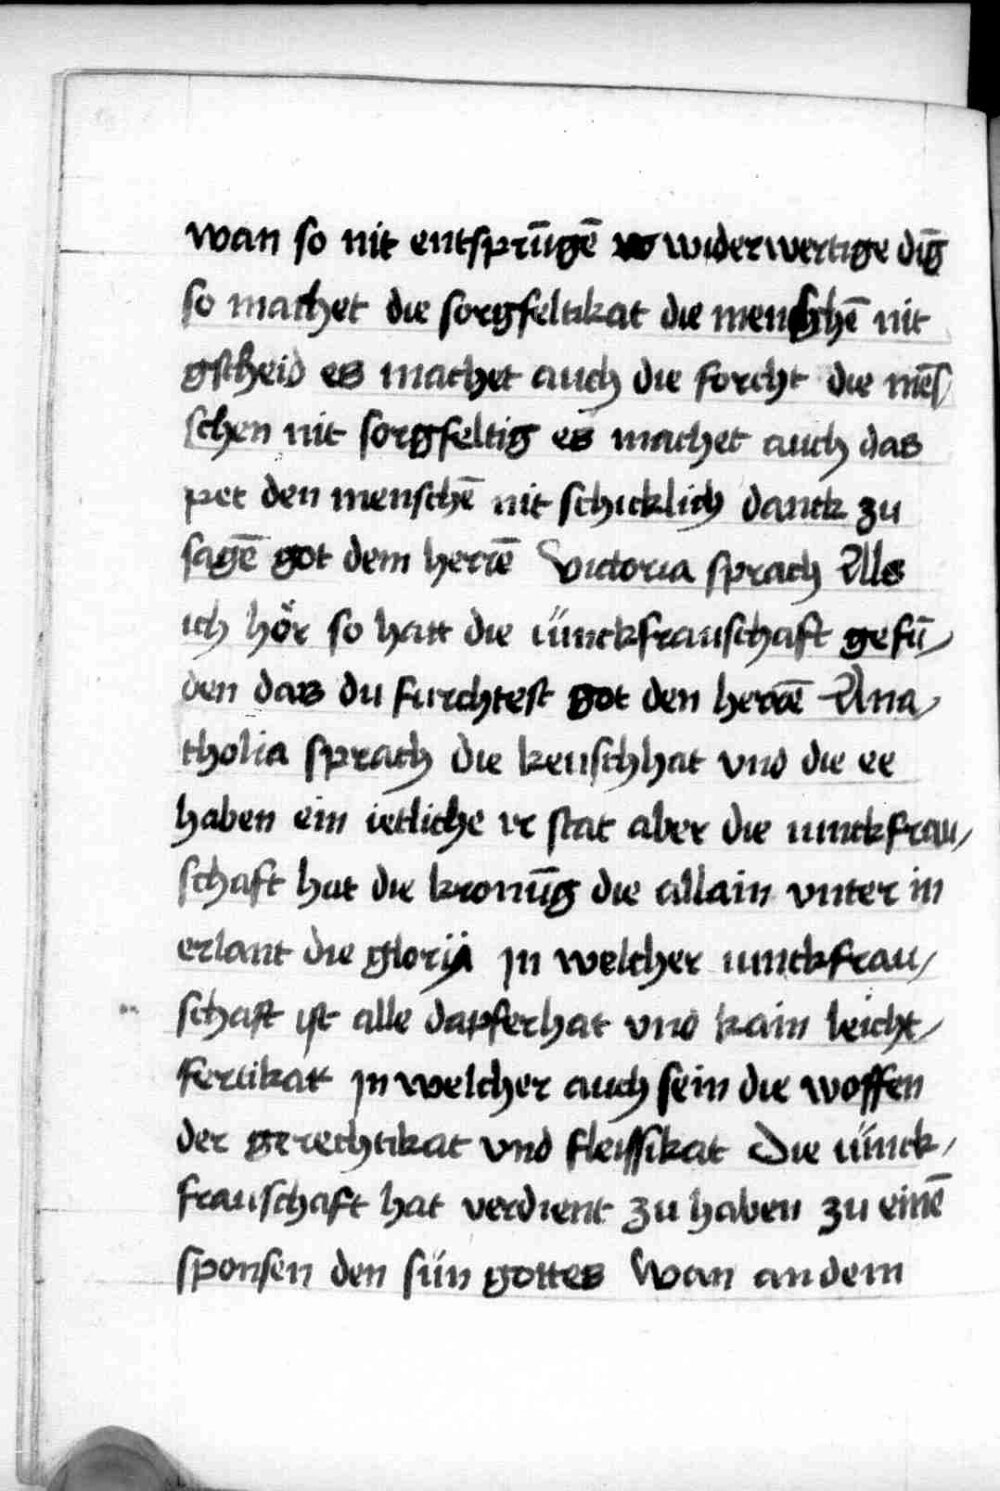 wan so nit entsprūgē wider wertige dīg
so machet die sorgfeltikat die menschē nit
gscheid es machet auch die forcht die mēs
schen nit sorgfeltig es machet auch das
pet den menschē nit schicklich danck zu
sagē got dem herrē Victoria sprach Alls
ich hör so hatt die iünckfrauschaft gefū/
den das du furchtest got den herrē Ana/
tholia sprach die keuschhat vnd die ee
haben ein ietliche ir stat aber die iunckfrau/
schaft hat die kronūg die allain vnter in
erlant die glorÿ jn welcher iunckfrau/
schaft ist alle dapferhat vnd kain leicht/
fertikatt jn welcher auch sein die woffen
der gerechtikat vnd fleissikat Die iünck/
frauschaft hat verdient zu haben zu einē
sponsen den sün gottes Wan an dem